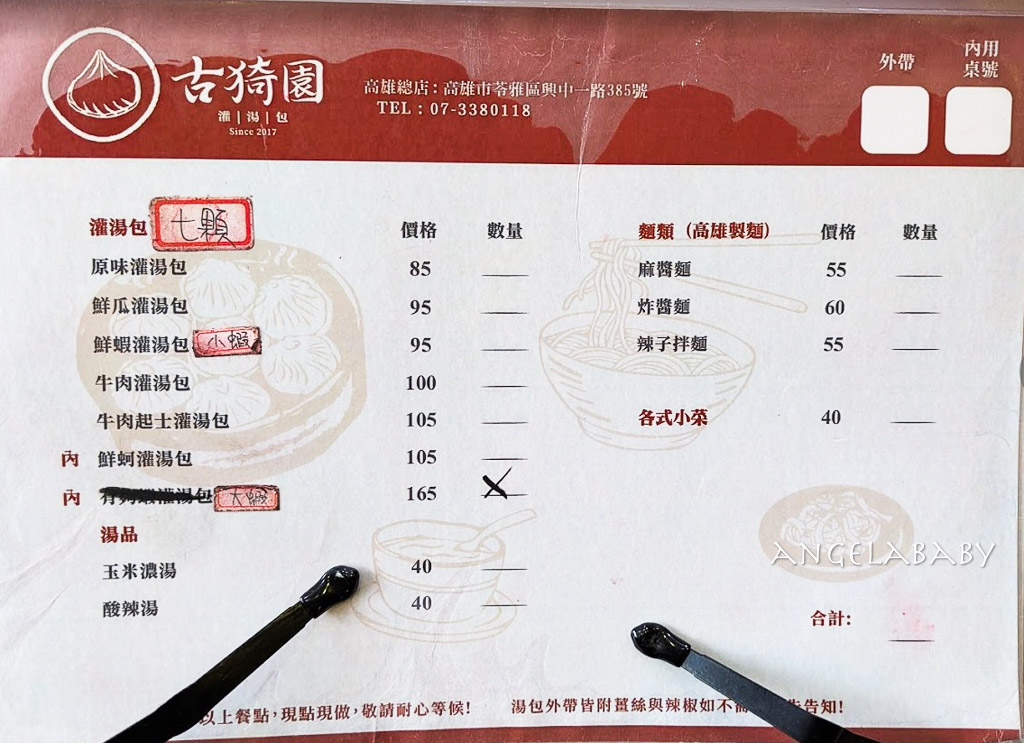 古猗園
灌|湯|包
Since 2017
高雄總店：高雄市苓雅區興中一路385號
TEL：07-3380118
外帶
內用
桌號
灌湯包 七顆 價格 數量
原味灌湯包 85
鮮瓜灌湯包 95
鮮蝦灌湯包 小蝦 95
牛肉灌湯包 100
牛肉起士灌湯包 105
內 鮮蚵灌湯包 105
內 有夠蝦灌湯包 大蝦 165
湯品
玉米濃湯 40
酸辣湯 40
麵類（高雄製麵） 價格 數量
麻醬麵 55
炸醬麵 60
辣子拌麵 55
各式小菜 40
ANGELABABY
合計：
以上餐點，現點現做，敬請耐心等候！
湯包外帶皆附薑絲與辣椒如不需 告知！